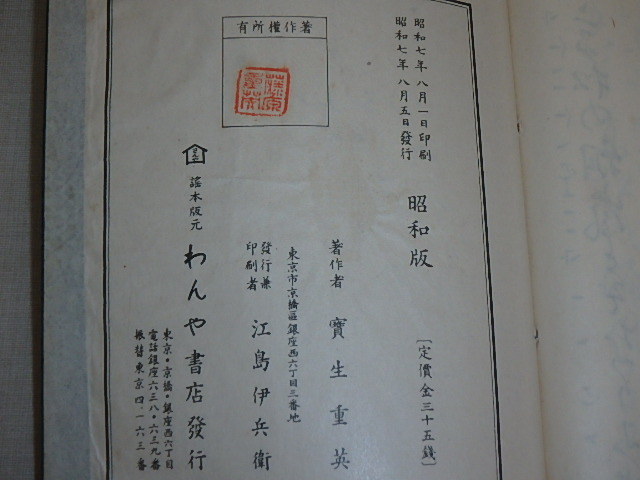 昭和七年八月一日印刷
昭和七年八月五日發行
昭和版
〔定價金三十五錢〕
著作者 寶生重英
東京市京橋區銀座西六丁目三番地
發行兼印刷者 江島伊兵衛
著作權所有
藤原重英
謠本版元 わんや書店發行
東京・京橋・銀座西六丁目
電話銀座六三八・六三九番
振替東京四・一六三番